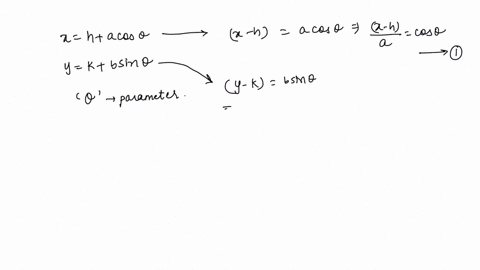 x = h + a cos θ → (x-h) = a cos θ ⇒ (x-h)/a = cos θ
→ ①
y = k + b sin θ
(y-k) = b sin θ
'θ' → parameter.
=